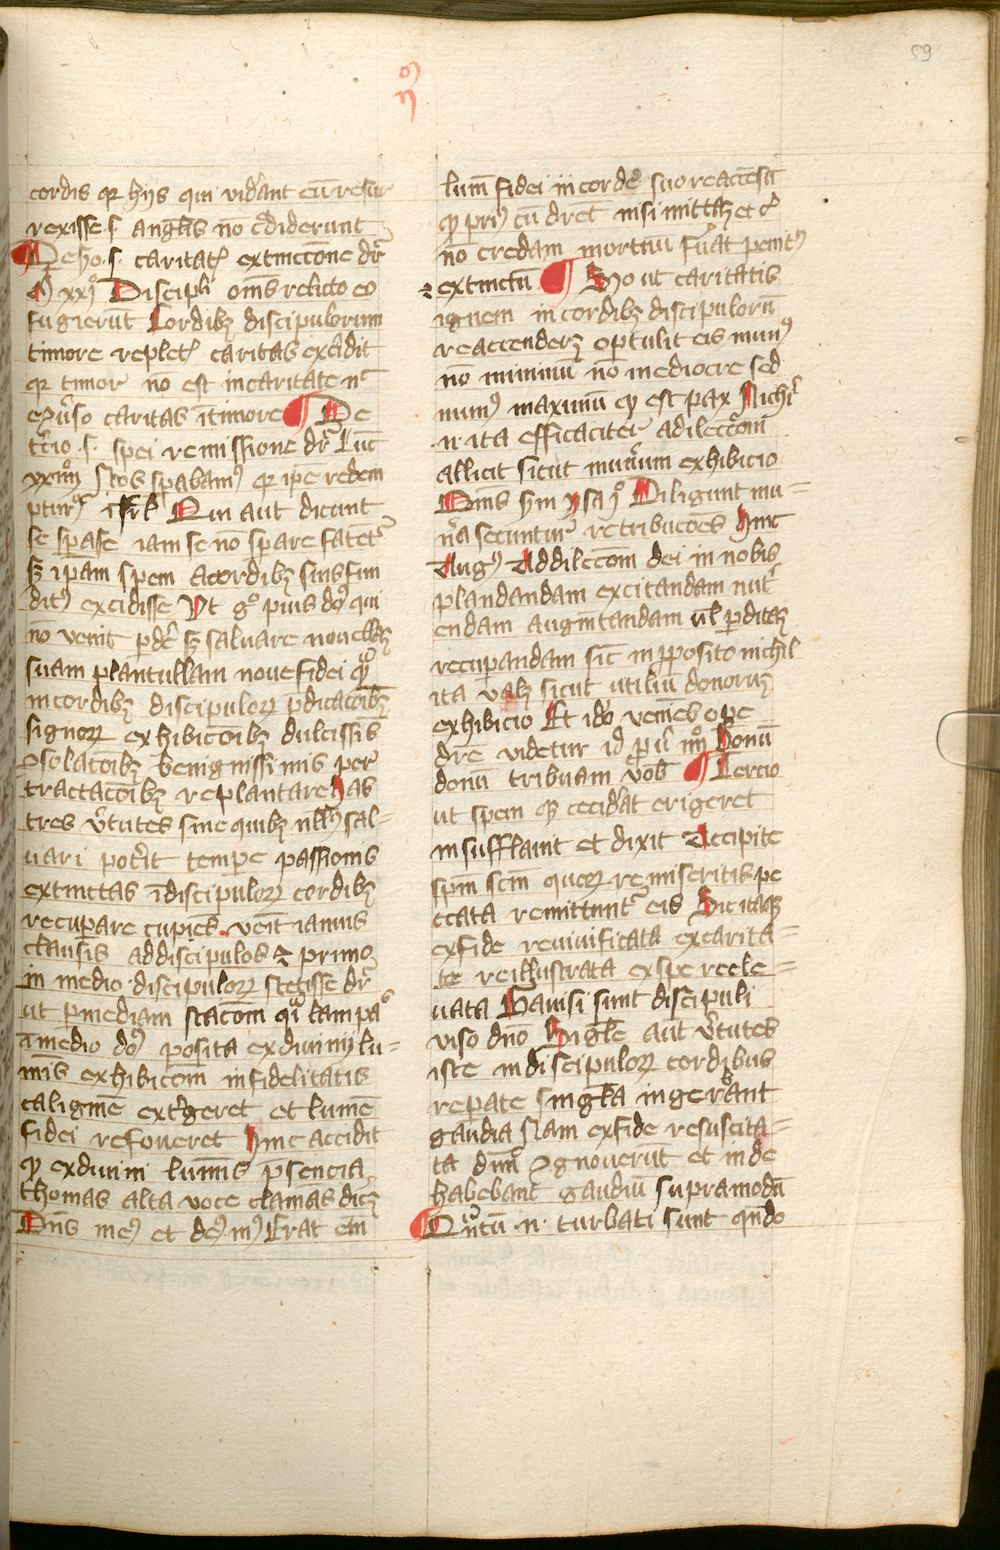 59
cordis qr hijs qui viderant eum resur
rexisse s. anglis no crediderunt
De 2o. s. caritatis extinccione dr
Discipli omes relicto eo
fugierut Cordibz discipulorum
timore repletis caritas excidit
qr timor no est in caritate nec
e converso caritas i timore De
tercio .s. spei remissione dr Luc
Nos sperabam9 qr ipe redem
ptur9 isrl Qui aut dicunt
se sperasse iam se no sperare fatent
sz ipam spem a cordibz suis fun
dit9 excidisse Ut go pius do9 qui
no venit perdere sz saluare nouellaz
suam plantullam noue fidei
in cordibz discipulor predicacoibz
signor exhibicoibz dulcissis
consolacoibz benignissimis per
tractacoibz replantare has
tres virtutes sine quibz null9 sal-
uari poterit tempe passionis
extinctas i discipulor cordibz
recuperare cupies venit ianuis
clausis ad discipulos et primo
in medio discipulor stetisse dr
ut per mediam stacoem quasi lampas
i medio do9 posita ex diuini lu-
minis exhibicoem infidelitatis
caligine extergeret et lume
fidei refoueret Hinc accidit
qz ex diuini luminis presencia
thomas alta voce clamas dicz
Dns me9 et de9 m9 Erat em
lume fidei in corde suo reaccesu
qz pri9 cu diret nisi mittaz etc
no credam mortuu fuerat penit9
et extinctu 2o ut caritatis
ignem in cordibz discipuloru
reaccenderz optulit eis mun9
no minimu no mediocre sed
mun9 maximu qz est pax Nichil
.n. ita efficaciter ad dileccoem
allicit sicut munerum exhibicio
Diligunt mu-
nera secuntur retribucoes Hinc
Aug9 Ad dileccoem dei in nobis
plandandam excitandam nutri
endam augmtandam vl perditaz
recuperandam sic in pposito nichil
ita valz sicut utiliu donoruz
exhibicio Et ido venies ope
dre videtur id Bonu
donu tribuam vob Tercio
ut spem q ceciderat erigeret
insufflauit et dixit Accipite
spm scm quor remiseritis pe
ccata remittuntr eis Sic itaqz
ex fide reuiuificata ex carita-
te reillustrata ex spe reele-
uata Gauisi sunt discipuli
viso dno Single aut virtutes
iste in discipulor cordibus
reparate singla ingerebant
gaudia Nam ex fide resuscita-
ta dnm cognouerut et inde
habebant gaudiu supra modu
.n. turbati sunt qndo